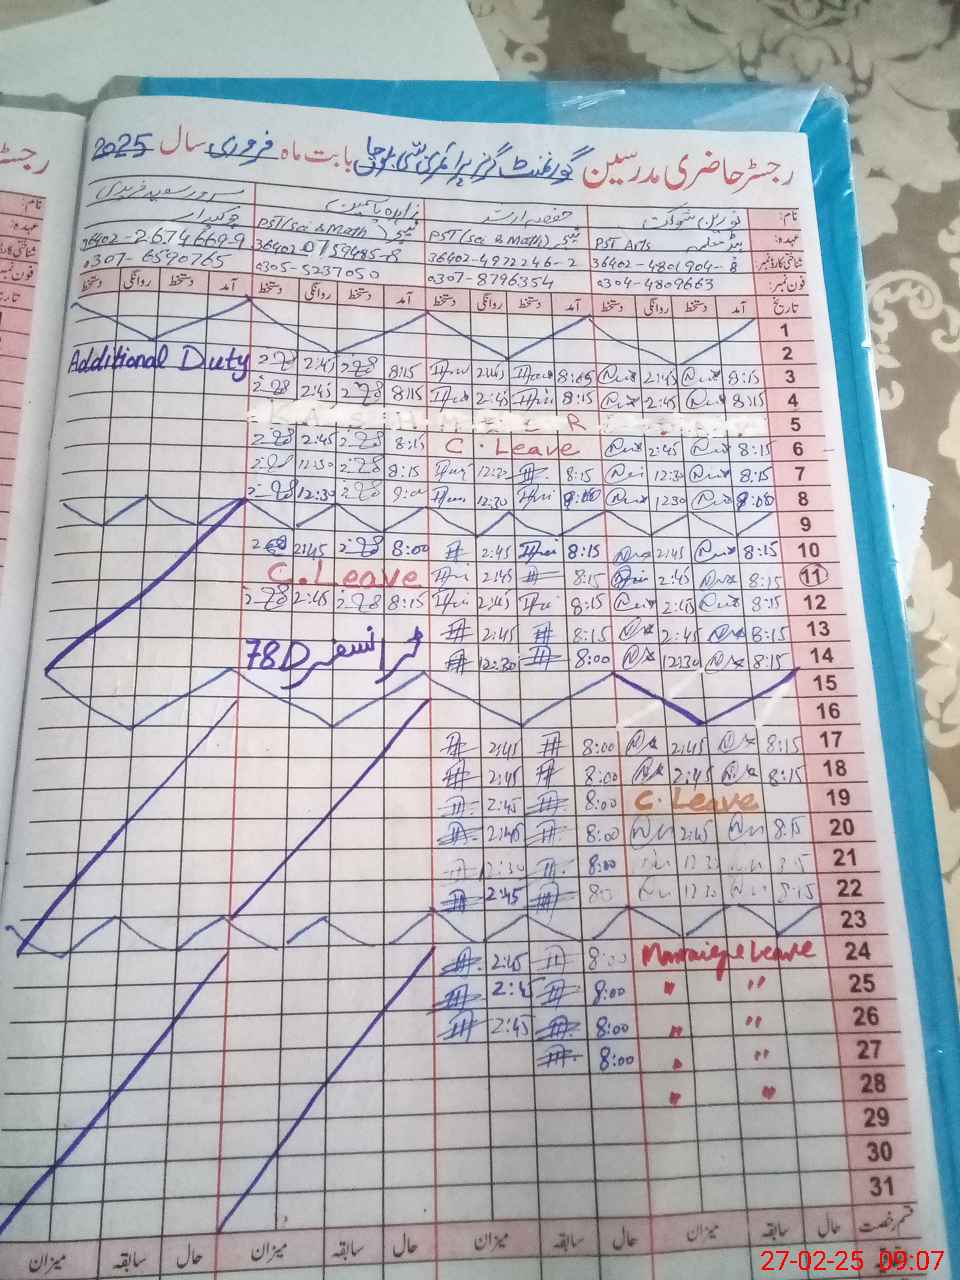 رجسٹر حاضری مدرسین گورنمنٹ گرلز پرائمری بابت ماہ فروری سال 2025
نام: نورین شوکت حفصہ ارشد زاہدہ یاسمین
عہدہ: PST Arts ہیڈ معلمہ PST (Sci & Math) ٹیچر PST (Sci & Math) ٹیچر چوکیدار
شناختی کارڈ نمبر: 36402-4801904-8 36402-4972246-2 36402-0159485-8 36402-2674669-9
فون نمبر: 0304-4809663 0307-8796354 0305-5237050 0307-6590765
تاریخ آمد دستخط روانگی دستخط آمد دستخط روانگی دستخط آمد دستخط روانگی دستخط آمد دستخط روانگی دستخط
1
2
3 8:15 2:45 8:05 2:45 8:15 2:45 Additional Duty
4 8:15 2:45 8:15 2:45 8:15 2:45
5 KASHMEER
6 8:15 2:45 C. Leave 8:15 2:45
7 8:15 12:30 8:15 12:30 8:15 12:30
8 8:00 12:30 8:00 12:30 8:00 12:30
9
10 8:15 2:45 8:15 2:45 8:00 2:45
11 8:15 2:45 8:15 2:45 C. Leave
12 8:15 2:45 8:15 2:45 8:15 2:45
13 8:15 2:45 8:15 2:45 ٹرانسفرڈ 78D
14 8:15 12:30 8:00 12:30
15
16
17 8:15 2:45 8:00 2:45
18 8:15 2:45 8:00 2:45
19 C. Leave 8:00 2:45
20 8:15 2:45 8:00 2:45
21 8:15 12:30 8:00 12:30
22 8:15 12:30 80 2:45
23
24 Marraige Leave 8:00 2:45
25 " " 8:00 2:45
26 " " 8:00 2:45
27 " " 8:00
28 " "
29
30
31
قسم رخصت حال سابقہ میزان حال سابقہ میزان حال سابقہ میزان حال سابقہ میزان
27-02-25 09:07